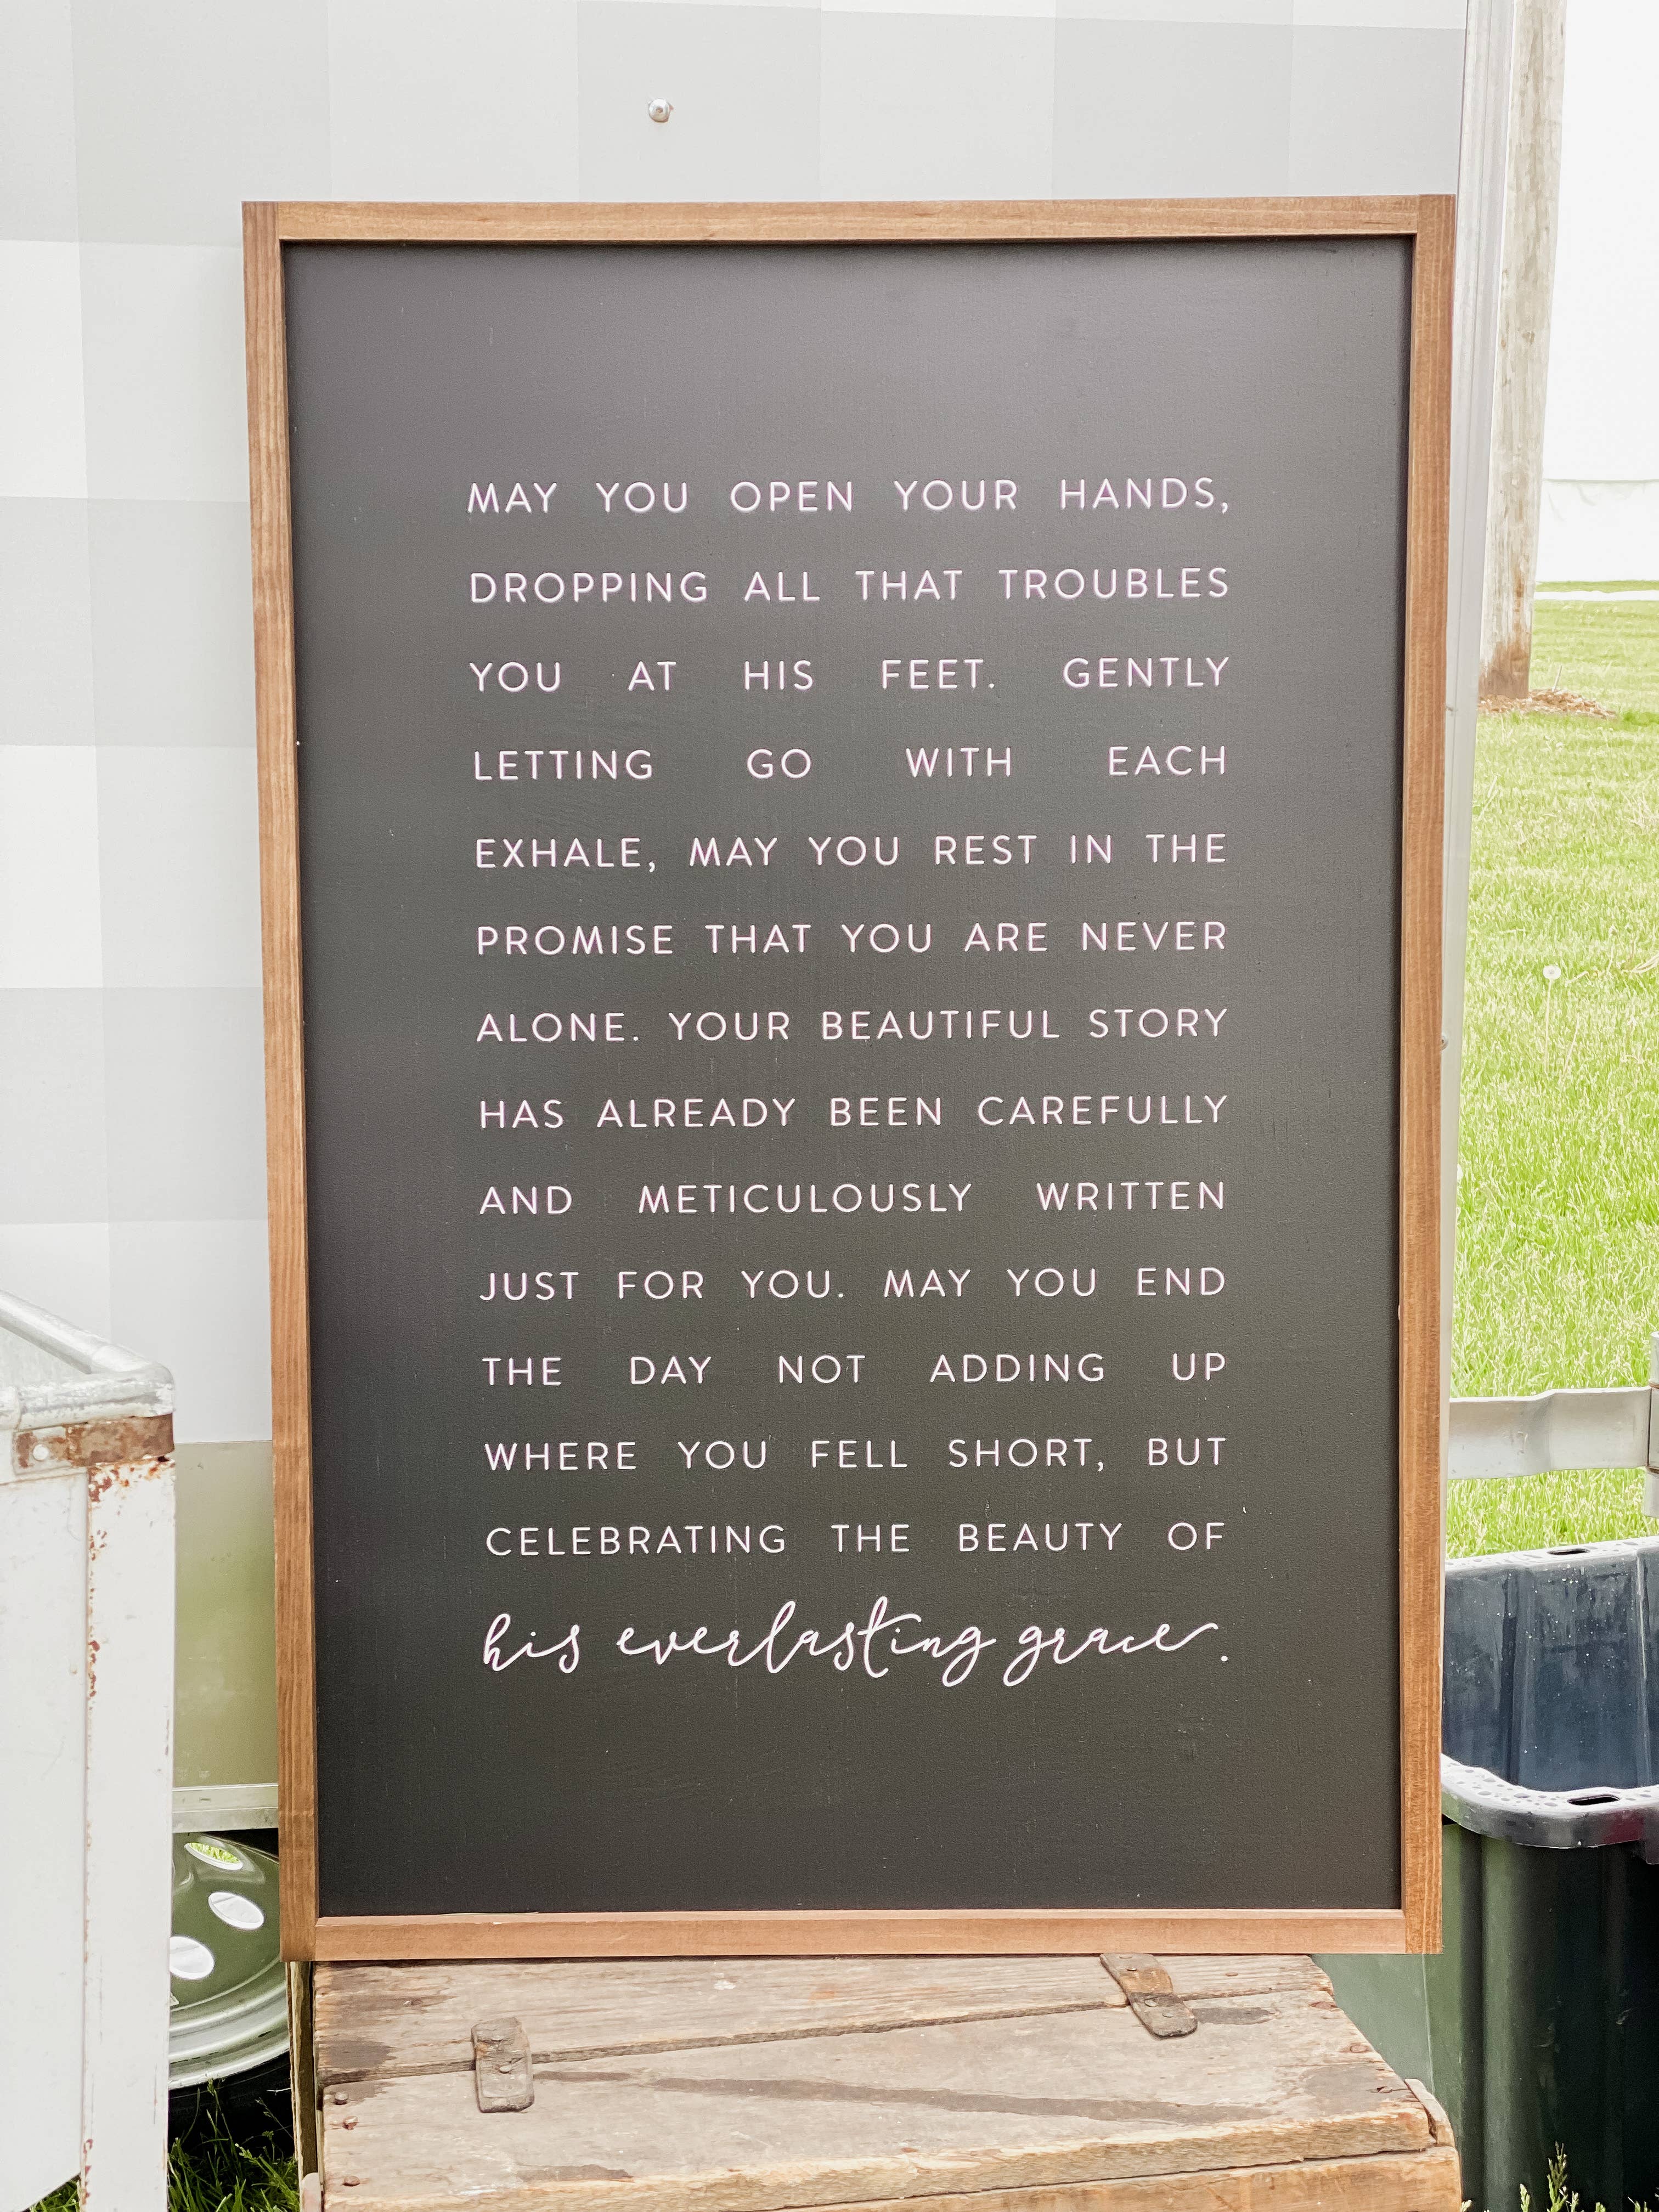 MAY YOU OPEN YOUR HANDS,
DROPPING ALL THAT TROUBLES
YOU AT HIS FEET. GENTLY
LETTING GO WITH EACH
EXHALE, MAY YOU REST IN THE
PROMISE THAT YOU ARE NEVER
ALONE. YOUR BEAUTIFUL STORY
HAS ALREADY BEEN CAREFULLY
AND METICULOUSLY WRITTEN
JUST FOR YOU. MAY YOU END
THE DAY NOT ADDING UP
WHERE YOU FELL SHORT, BUT
CELEBRATING THE BEAUTY OF
his everlasting grace.